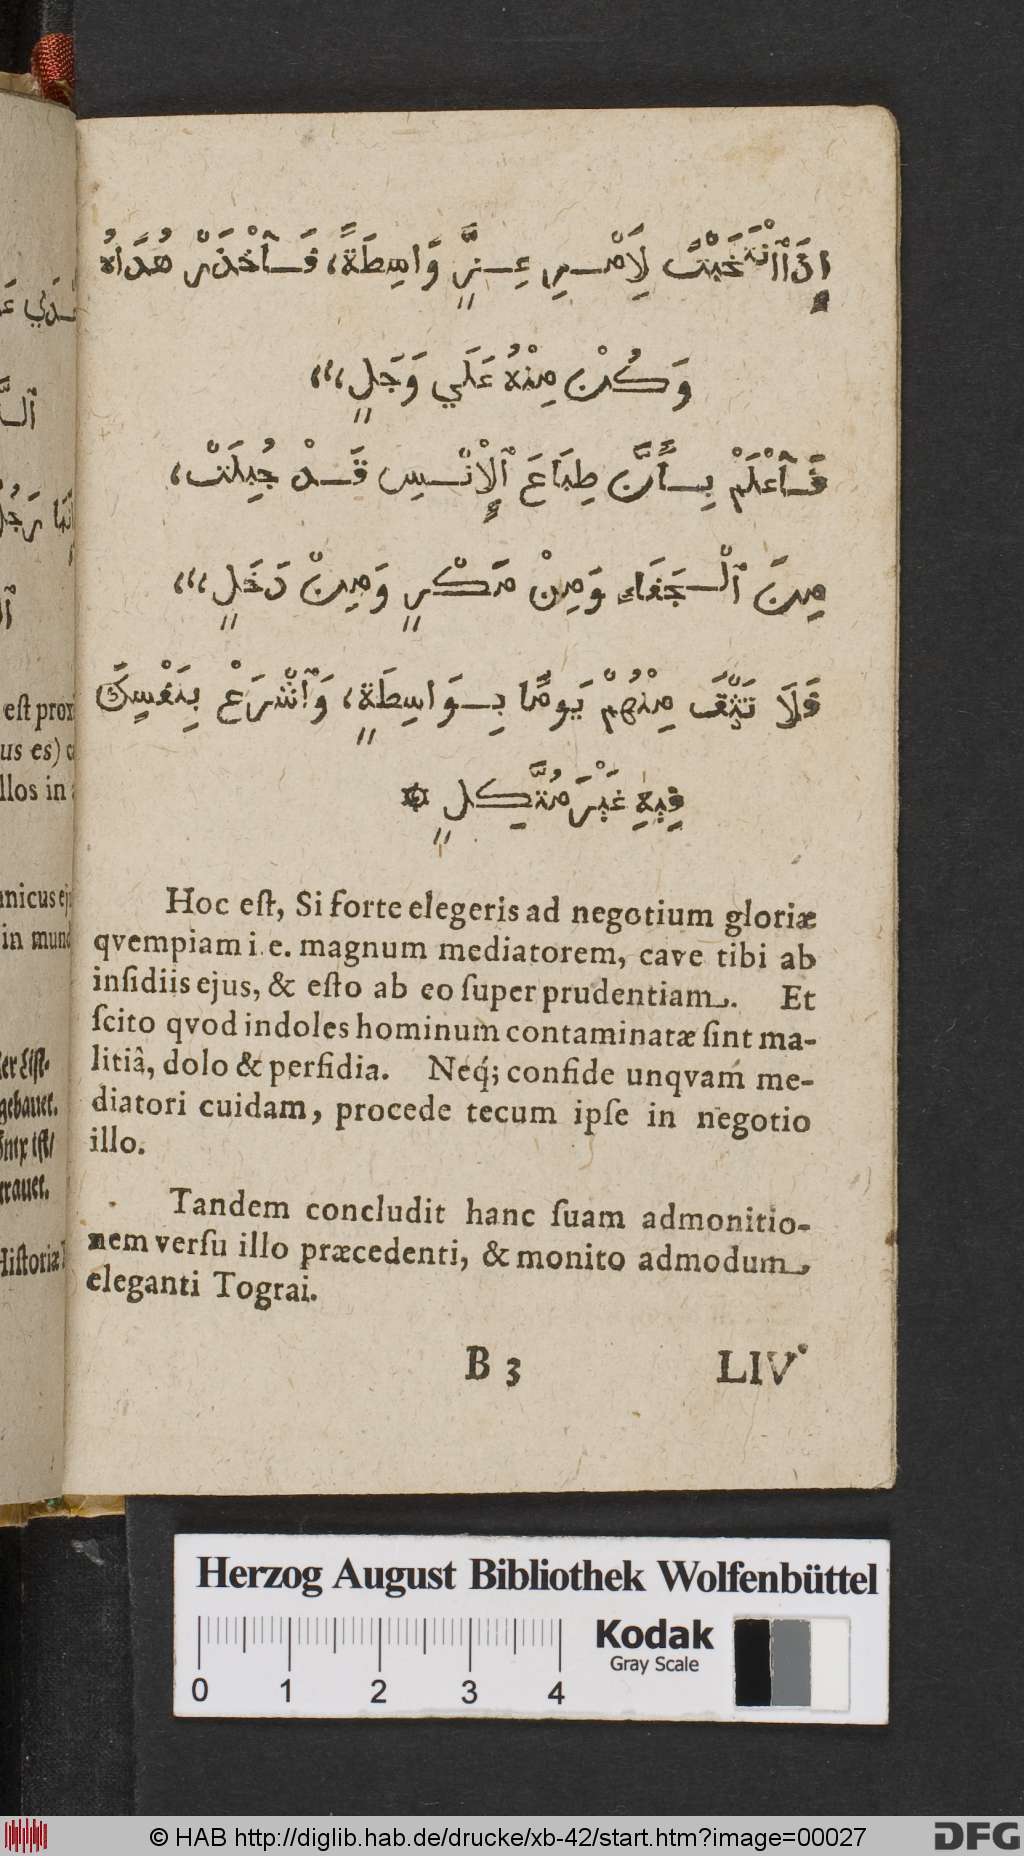 إِذَا ٱنْتَخَبْتَ لِأَمْرِ عِزٍّ وَاسِطَةً، فَٱحْذَرْ هُدَاهُ
وَكُنْ مِنْهُ عَلَي وَجَلٍ،،،
فَٱعْلَمْ بِأَنَّ طِبَاعَ ٱلْإِنْسِ قَدْ جُبِلَتْ،
مِنَ ٱلْجَفَاءِ وَمِنْ مَكْرٍ وَمِنْ دَخَلٍ،،،
فَلَا تَثِقَّ مِنْهُمْ يَومًا بِوَاسِطَةٍ، وَٱشْرَعْ بِنَفْسِكَ
فِيهِ غَيْرَ مُتَّكِلٍ ۞
Hoc est, Si forte elegeris ad negotium gloriæ
qvempiam i. e. magnum mediatorem, cave tibi ab
insidiis ejus, & esto ab eo super prudentiam. Et
scito qvod indoles hominum contaminatæ sint ma-
litiâ, dolo & perfidia. Neq́; confide unqvam me-
diatori cuidam, procede tecum ipse in negotio
illo.
Tandem concludit hanc suam admonitio-
nem versu illo præcedenti, & monito admodum
eleganti Tograi.
B 3 LIV
est prox
us es)
llos in
nicus ej
in mund
gebauet.
Historia
Herzog August Bibliothek Wolfenbüttel
Kodak
Gray Scale
0 1 2 3 4
© HAB http://diglib.hab.de/drucke/xb-42/start.htm?image=00027
DFG